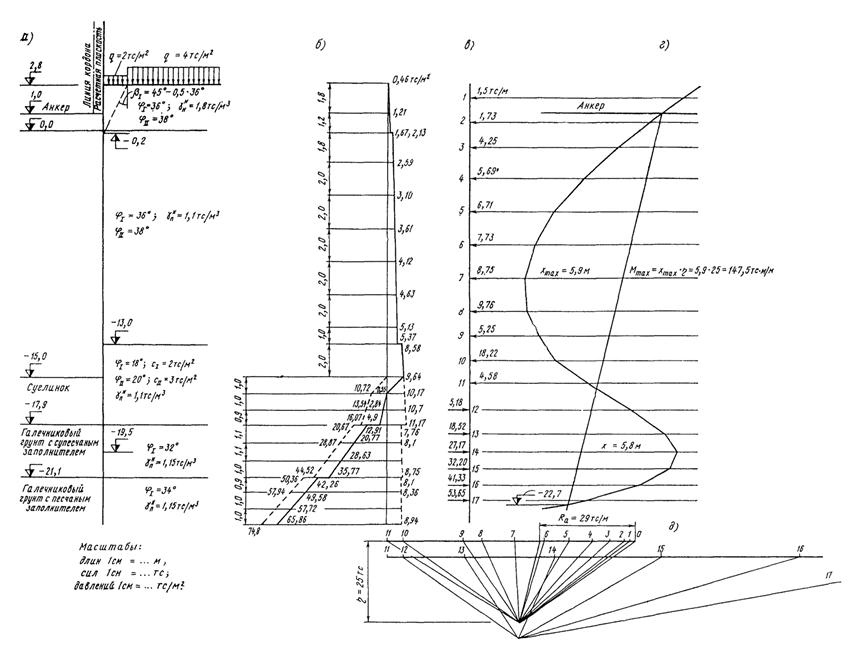 а)
Линия кордона
Расчетная плоскость
q=2тс/м²
q = 4тс/м²
2,8
1,0
Анкер
0,0
-0,2
β_I = 45°-0,5·36°
φ_I=36°; γ_п^н=1,8тс/м³
φ_II=38°
φ_I = 36°; γ_п^н=1,1тс/м³
φ_II=38°
-13,0
-15,0
Суглинок
φ_I=18°; c_I = 2тс/м²
φ_II=20°; c_II=3тс/м²
γ_п^н=1,1тс/м³
-17,9
Галечниковый
грунт с супесчаным
заполнителем
-19,5
φ_I=32°
γ_п^н=1,15тс/м³
-21,1
Галечниковый
грунт с песчаным
заполнителем
φ_I=34°
γ_п^н=1,15тс/м³
Масштабы:
длин 1см = ... м,
сил 1см = ... тс;
давлений 1см= ... тс/м²
б)
1,8
1,2
1,8
2,0
2,0
2,0
2,0
2,0
2,0
1,0
2,0
1,0
1,0
0,9
1,1
1,1
0,9
1,0
1,0
0,46тс/м²
1,21
1,67; 2,13
2,59
3,10
3,61
4,12
4,63
5,13
5,37
8,58
9,64
10,17
10,7
11,17
7,76
8,1
8,75
8,1
8,36
8,94
10,72
13,54
2,84
16,07
4,9
20,67
12,91
20,77
28,87
28,63
44,52
35,77
50,36
42,26
57,94
49,58
57,72
74,8
65,86
в)
1 1,5тс/м
2 1,73
3 4,25
4 5,69
5 6,71
6 7,73
7 8,75
8 9,76
9 5,25
10 18,22
11 4,58
5,18 12
18,52 13
27,17 14
32,20 15
41,33 16
53,65 17
г)
Анкер
x_max = 5,9м
M_max=x_max·р=5,9·25=147,5тс·м/м
x = 5,8м
-22,7
д)
R_a = 29тс/м
р = 25тс
11 10 9 8 7 6 5 4 3 2 1 0
11 12 13 14 15 16
17